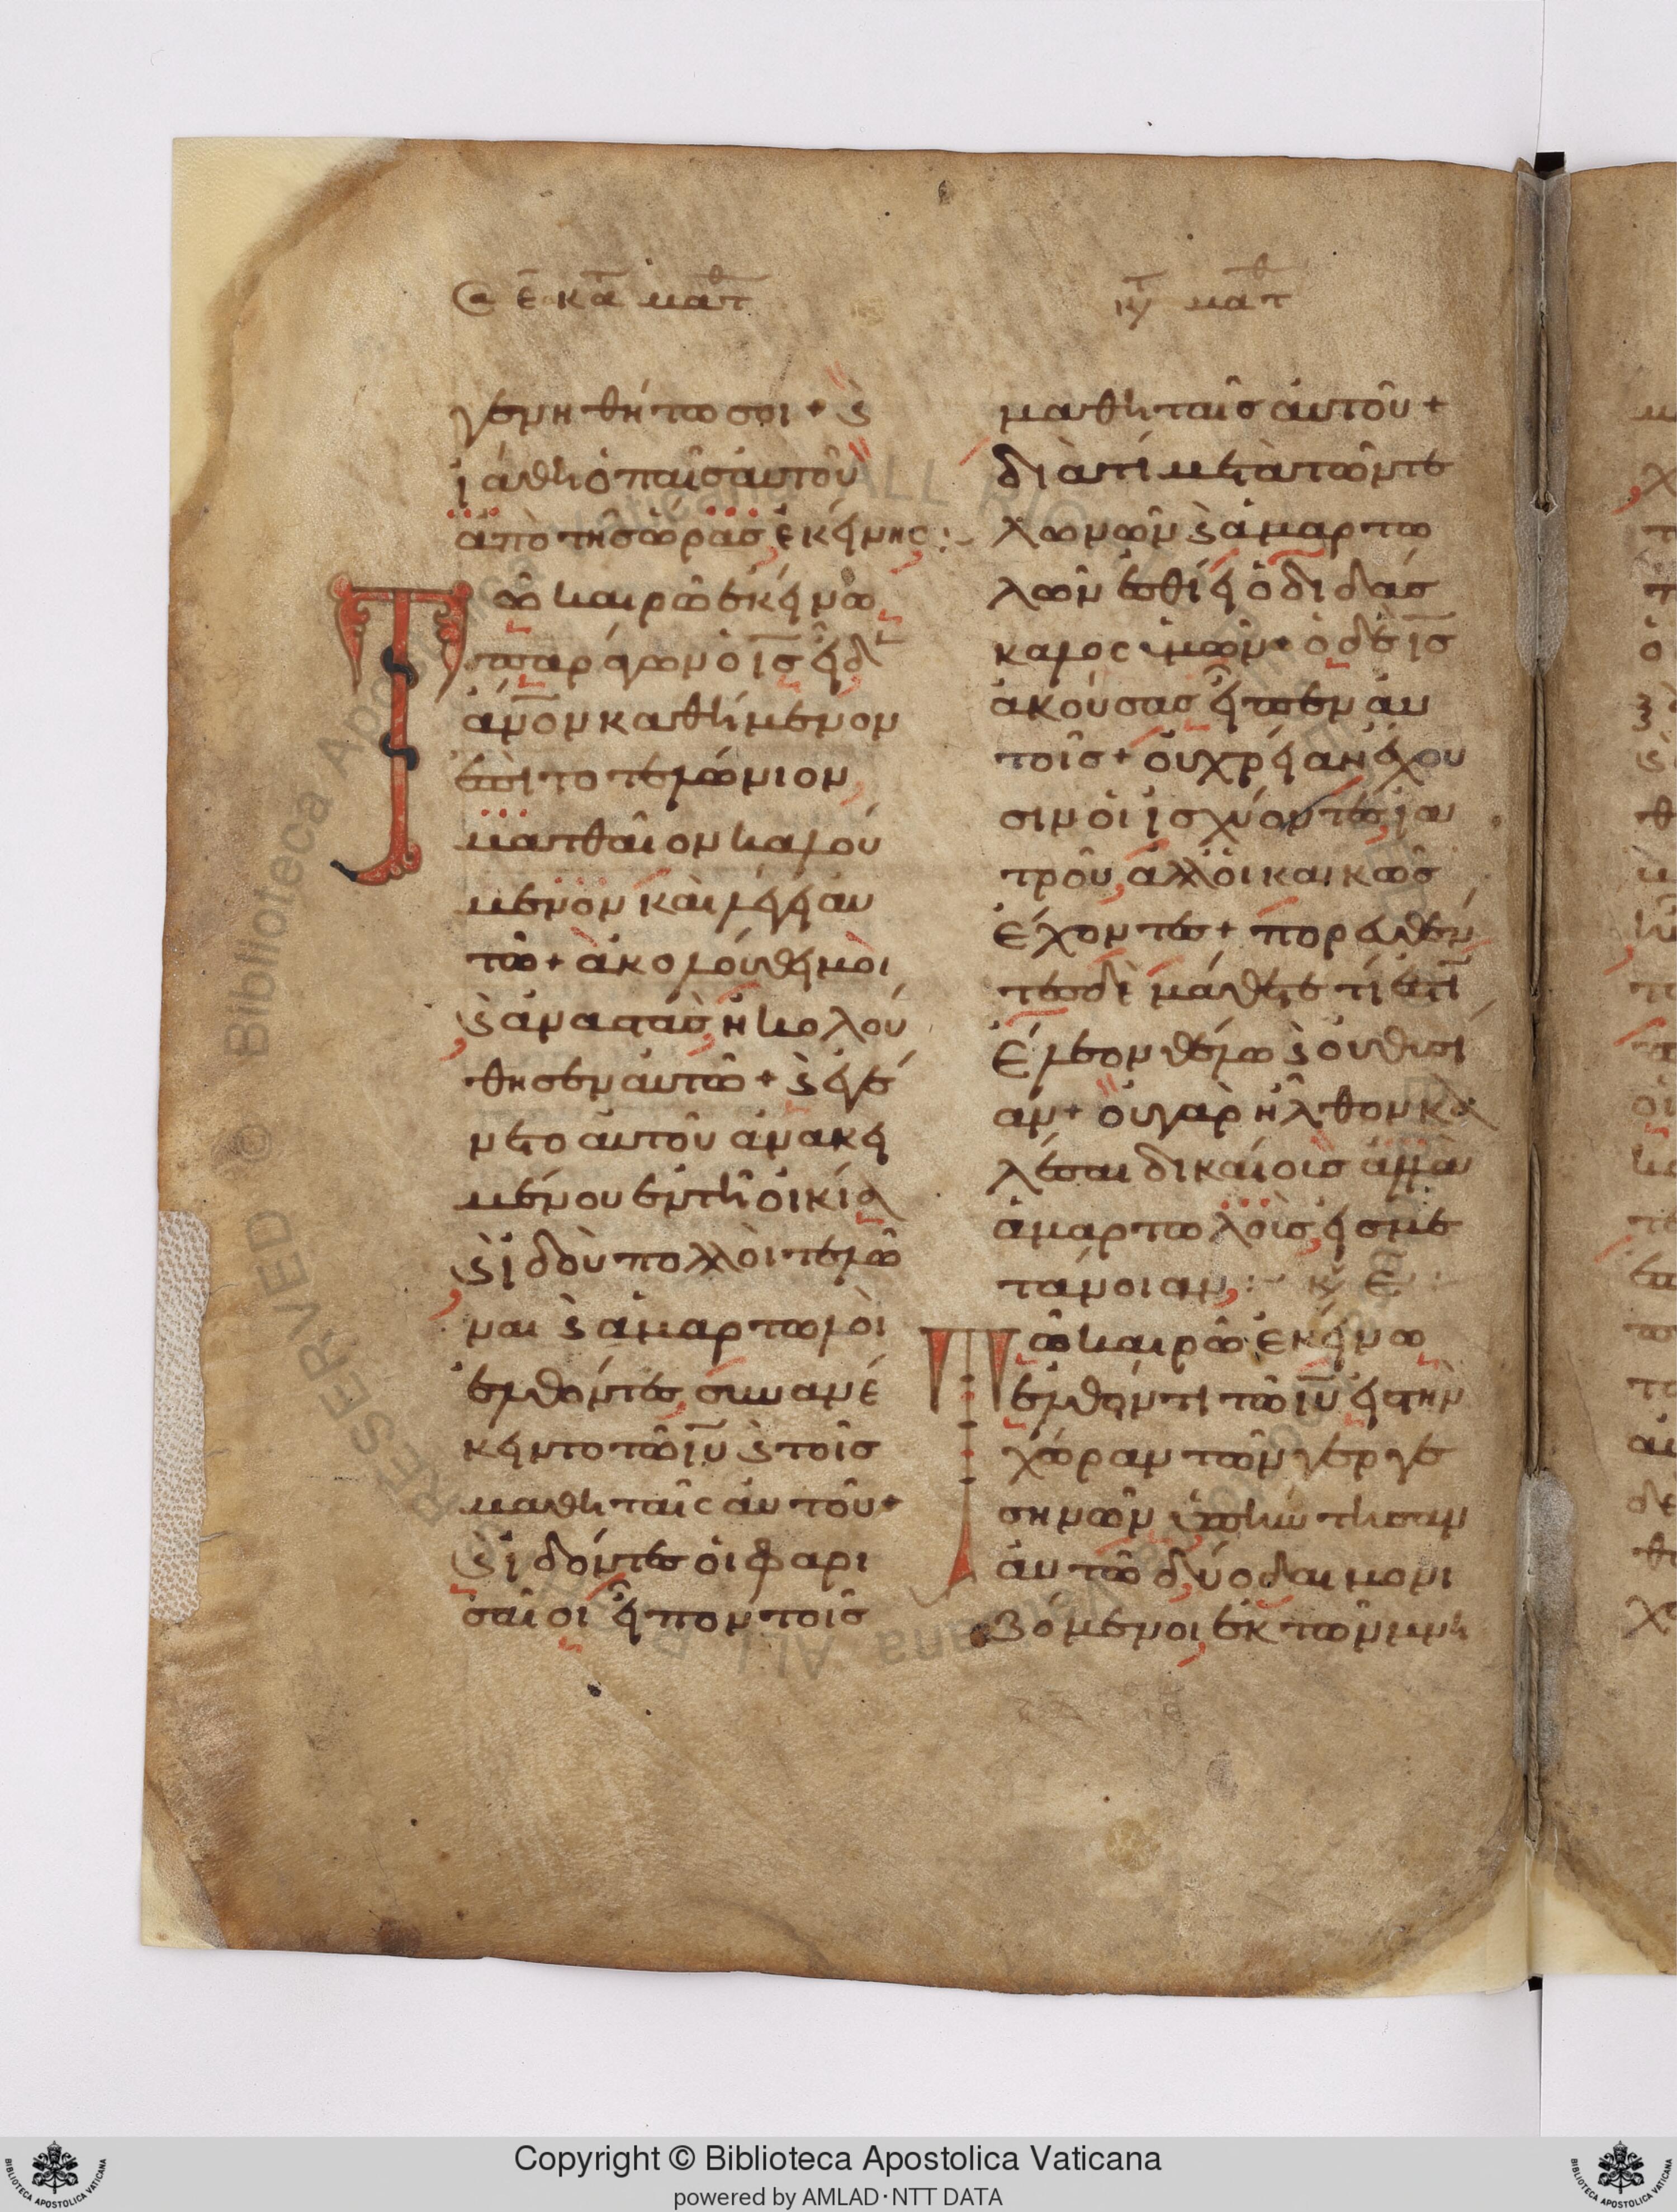 γενηθήτω σοι + ϗ
ἰάθη ὁ παῖς αὐτοῦ
ἀπὸ τῆς ὥρας ἐκείνης :
Τῶ καιρῶ ἐκείνω
παράγων ὁ ις εἶδεν
ἄνον καθήμενον
ἐπὶ το τελώνιον
ματθαῖον καλού
μενον καὶ λέγει αυ
τῶ + ἀκολούθει μοι
ϗ ἀναστὰς ἠκολού
θησεν αυτῶ + ϗ ἐγέ
νετο αυτοῦ ἀνακει
μένου ἐν τῆ οἰκία
ϗ ἰδοὺ πολλοὶ τελῶ
ναι ϗ ἁμαρτωλοὶ
ἐλθόντες συνανέ
κειντο τῶ ιυ ϗ τοῖς
μαθηταῖς αὐτοῦ +
ϗ ἰδόντες οἱ φαρι
σαῖοι εἶπον τοῖς
μαθηταῖς αὐτοῦ +
διὰ τί μετὰ τῶν τε
λωνῶν ϗ ἁμαρτω
λῶν ἐσθίει ὁ διδάσ
καλος ὑμῶν + ὁ δὲ ις
ἀκούσας εἶπεν αυ
τοῖς + οὐ χρείαν ἔχου
σιν οἱ ἰσχύοντες ἰα
τροῦ, ἀλλ' οἱ κακῶς
ἔχοντες + πορευθέν
τες δὲ μάθετε τί ἐστὶ
ἔλεον θέλω ϗ οὐ θυσί
αν + οὐ γὰρ ἦλθον κα
λέσαι δικαίους ἀλλὰ
ἁμαρτωλοὺς εἰς με
τάνοιαν : κυ ε
Τῶ καιρῶ ἐκείνω
ἐλθόντι τῶ ιυ εἰς τὴν
χώραν τῶν γεργε
σηνῶν ὑπήντησαν
αὐτῶ δύο δαιμονι
ζόμενοι ἐκ τῶν μνη
Copyright © Biblioteca Apostolica Vaticana
powered by AMLAD·NTT DATA